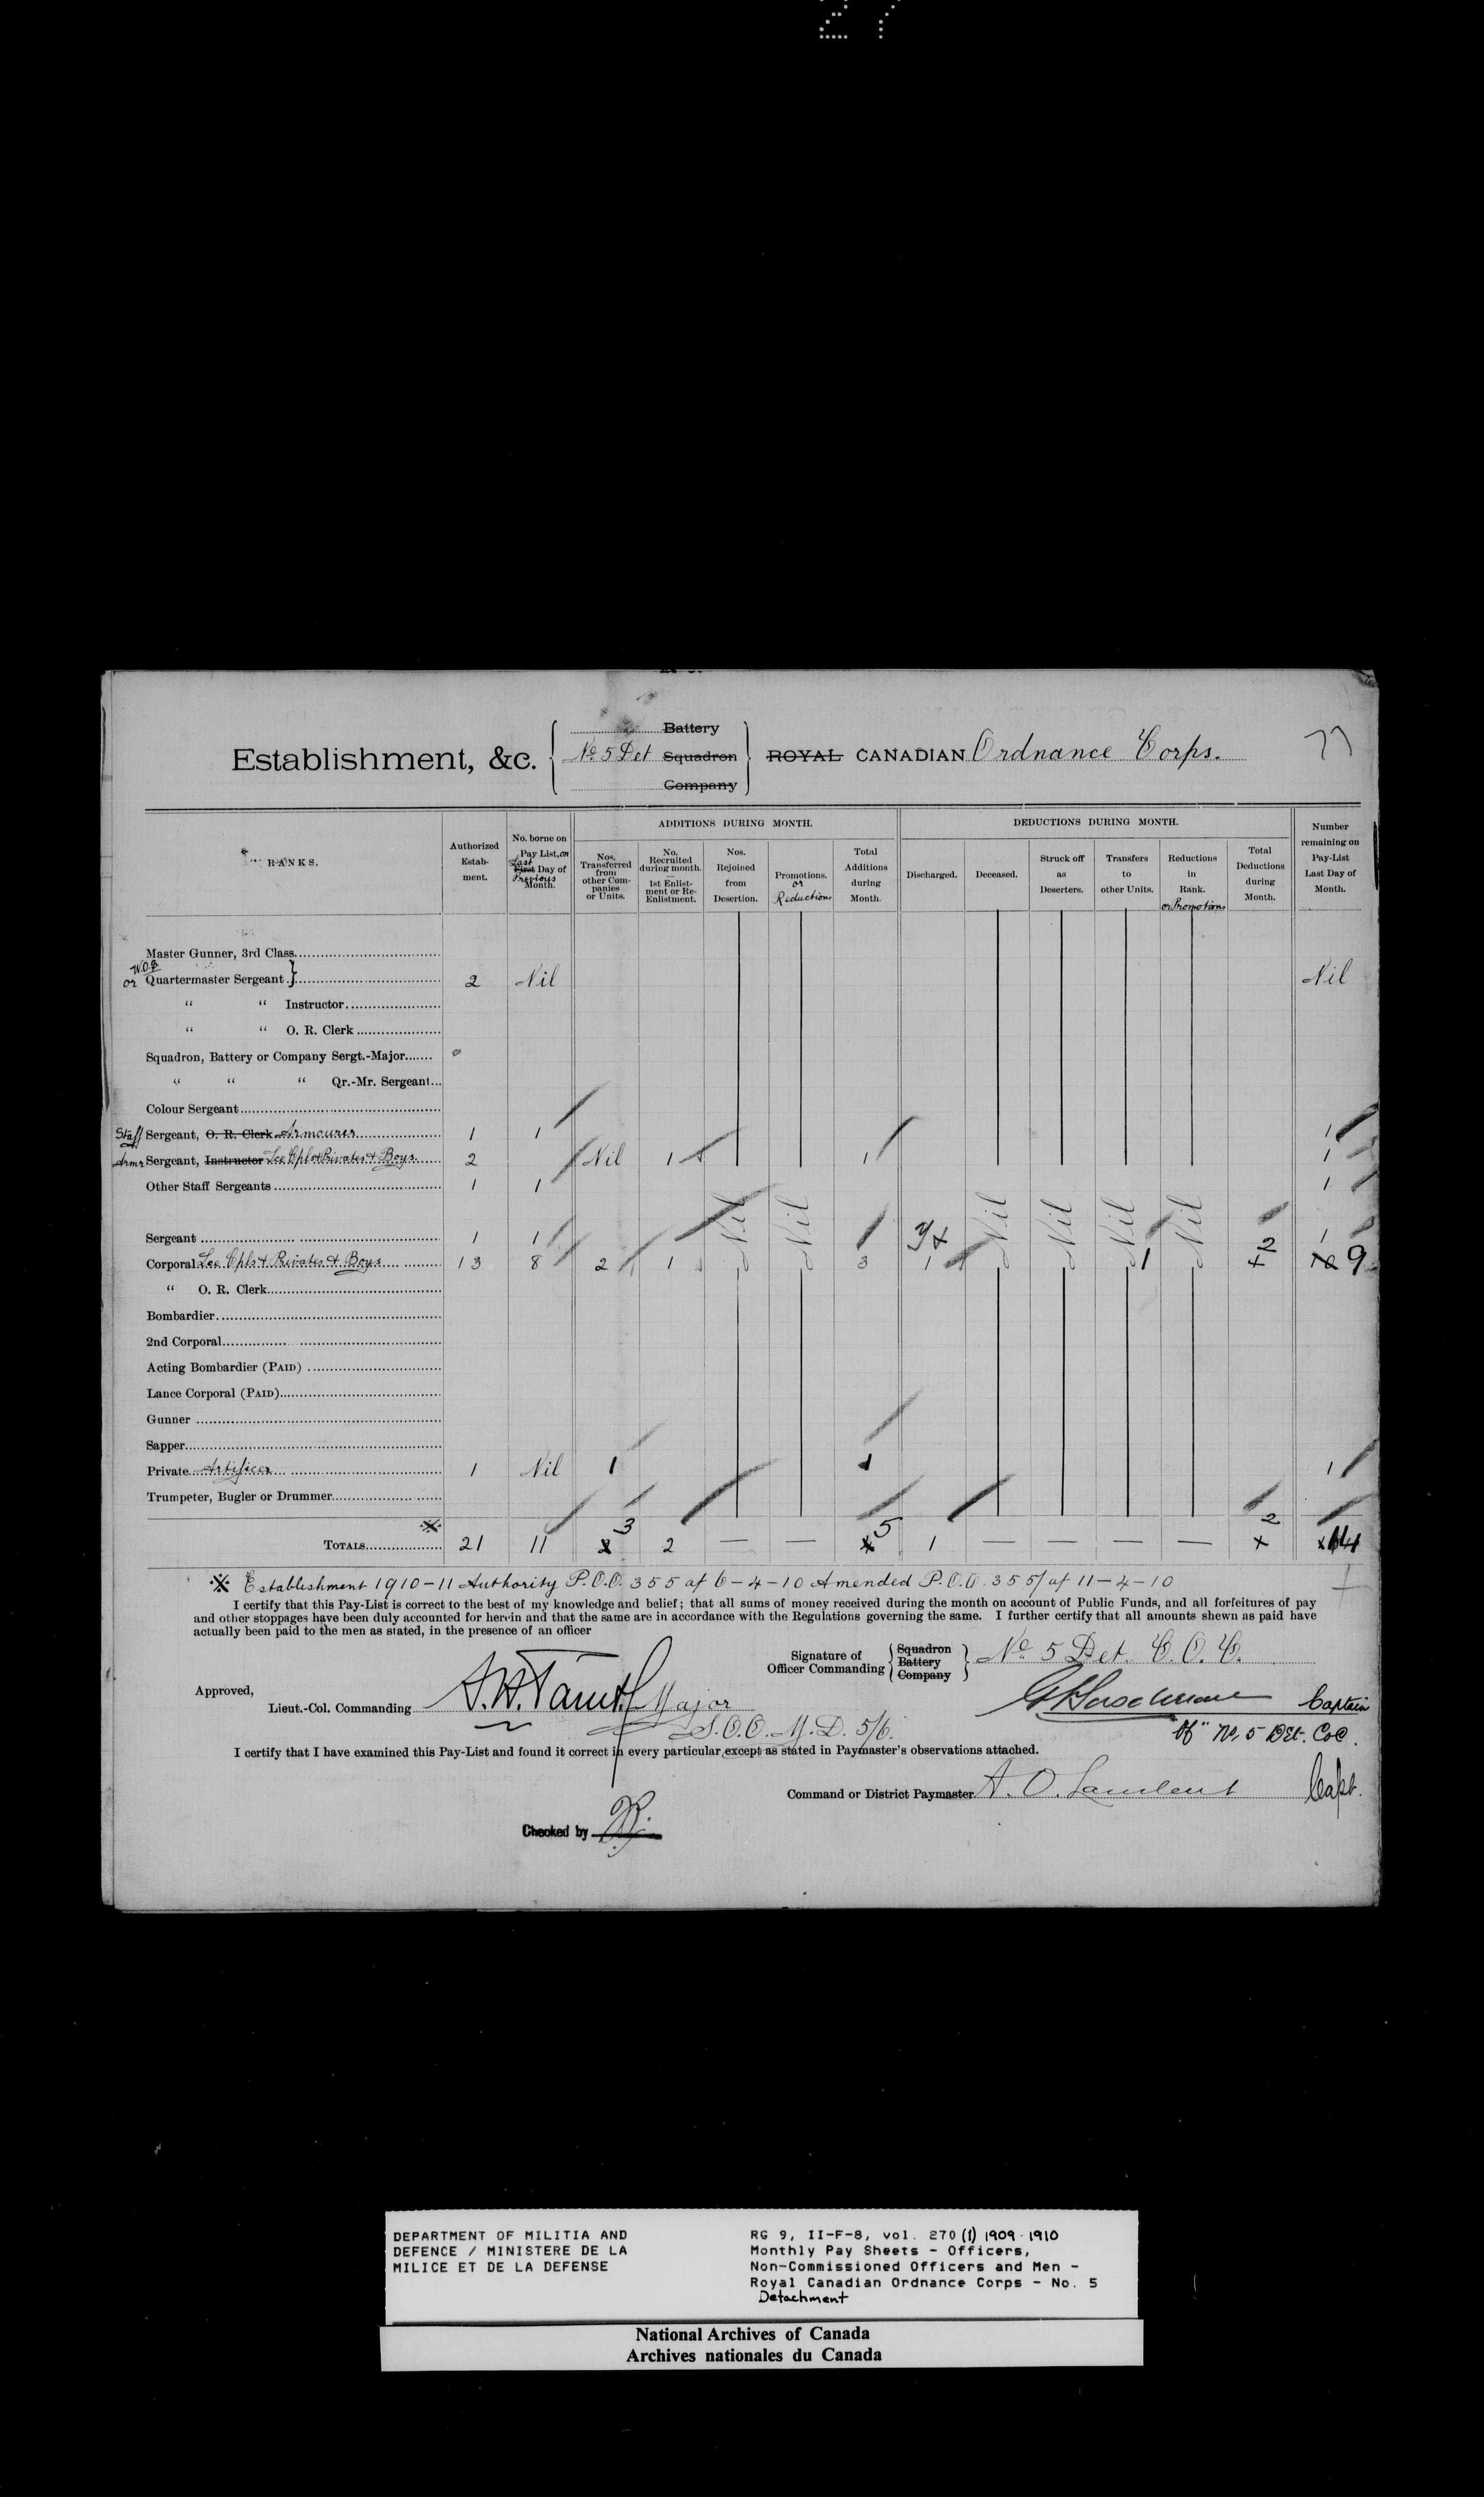 27
77
Battery
Establishment, &c. No 5 Det Squadron ROYAL CANADIAN Ordnance Corps.
Company
RANKS.
Authorized Estab- ment.
No. borne on Pay List, on Last First Day of Previous Month.
ADDITIONS DURING MONTH.
Nos. Transferred from other Com- panies or Units.
No. Recruited during month. — 1st Enlist- ment or Re- Enlistment.
Nos. Rejoined from Desertion.
Promotions. or Reductions
Total Additions during Month.
DEDUCTIONS DURING MONTH.
Discharged.
Deceased.
Struck off as Deserters.
Transfers to other Units.
Reductions in Rank. or Promotions
Total Deductions during Month.
Number remaining on Pay-List Last Day of Month.
Master Gunner, 3rd Class
or W.O.s Quartermaster Sergeant 2 Nil Nil
“ “ Instructor
“ “ O. R. Clerk
Squadron, Battery or Company Sergt.-Major
“ “ “ Qr.-Mr. Sergeant
Colour Sergeant
Staff Sergeant, O. R. Clerk Armourer 1 1 1
Armr Sergeant, Instructor See Cpls & Privates & Boys 2 Nil 1 1 1
Other Staff Sergeants 1 1 1
Nil Nil Nil Nil Nil Nil
Sergeant 1 1 1
Corporal See Cpls & Privates & Boys 13 8 2 1 3 1 1 2 9
“ O. R. Clerk
Bombardier
2nd Corporal
Acting Bombardier (PAID)
Lance Corporal (PAID)
Gunner
Sapper
Private Artificer 1 Nil 1 1 1
Trumpeter, Bugler or Drummer
TOTALS 21 11 3 2 — — 5 1 — — — — 2 14
※ Establishment 1910-11 Authority P.O.O. 355 of 6-4-10 Amended P.O.O. 355/ of 11-4-10
I certify that this Pay-List is correct to the best of my knowledge and belief; that all sums of money received during the month on account of Public Funds, and all forfeitures of pay
and other stoppages have been duly accounted for herein and that the same are in accordance with the Regulations governing the same. I further certify that all amounts shewn as paid have
actually been paid to the men as stated, in the presence of an officer
Signature of Officer Commanding Squadron Battery Company No 5 Det. C.O.C.
Approved,
Lieut.-Col. Commanding Major
Captain
S.O.O. M.D. 5/6.
No, 5 Det. COC.
I certify that I have examined this Pay-List and found it correct in every particular except as stated in Paymaster's observations attached.
Command or District Paymaster A. O. Lambert Capt.
Checked by
DEPARTMENT OF MILITIA AND
DEFENCE / MINISTERE DE LA
MILICE ET DE LA DEFENSE
RG 9, II-F-8, vol. 270 (1) 1909-1910
Monthly Pay Sheets - Officers,
Non-Commissioned Officers and Men -
Royal Canadian Ordnance Corps - No. 5
Detachment
National Archives of Canada
Archives nationales du Canada